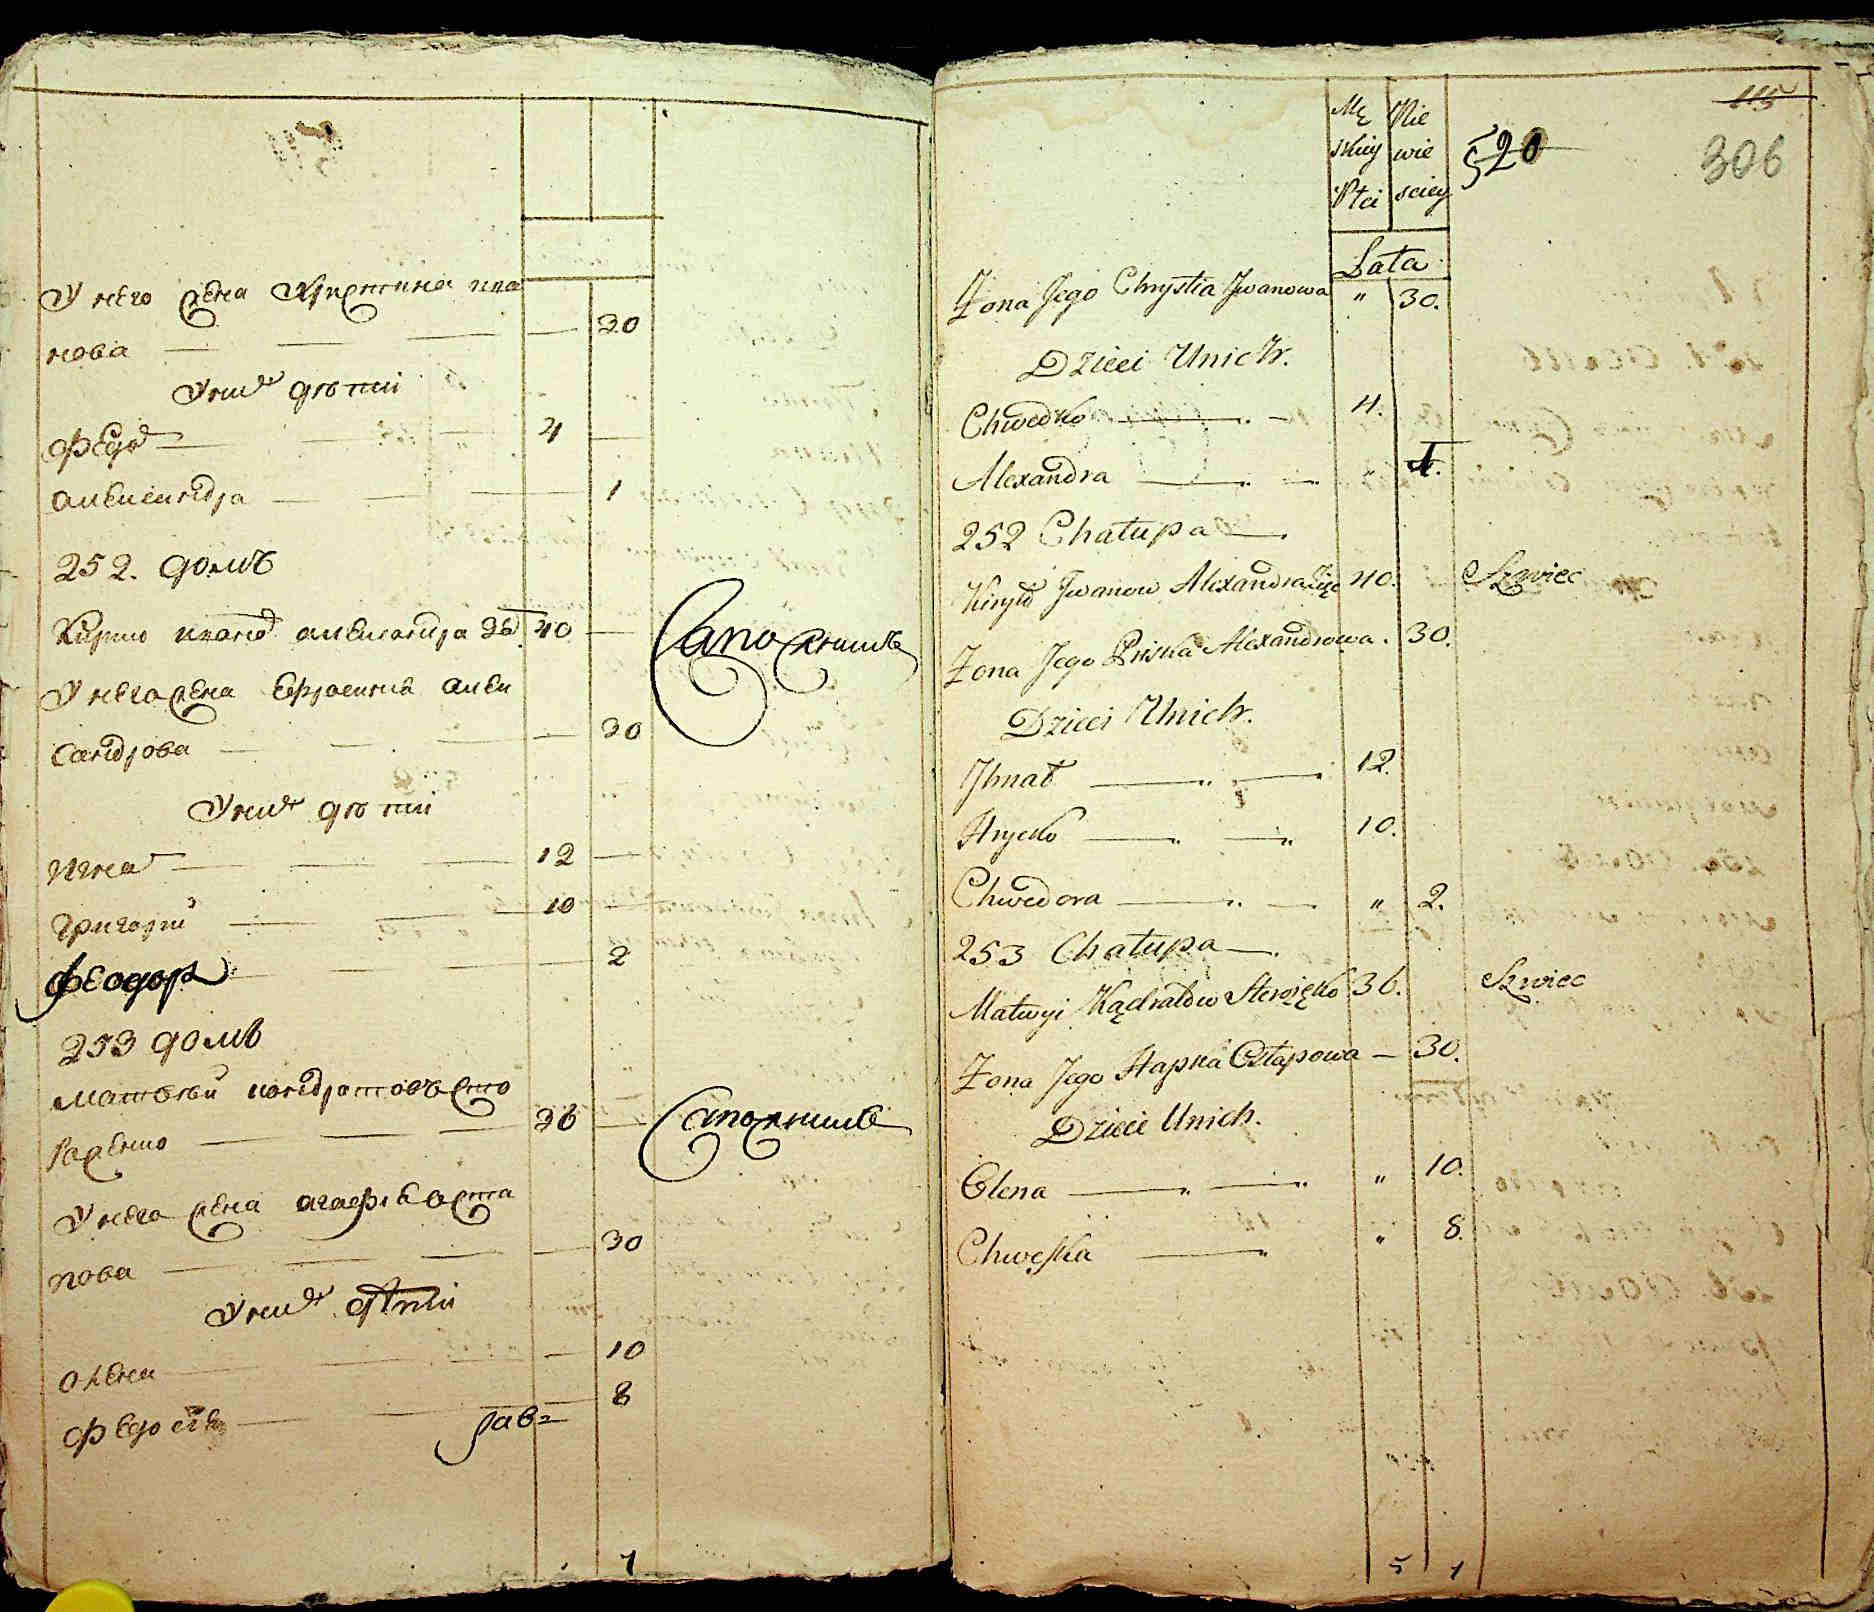 У него жена Христина ива
нова — 30
У них дѣти
Федор — 4
александра — 1
252. домъ
Кирило иванов александра зя 40
Сапожникъ
У него жена Ефросиния алек
сандрова — 30
У них дѣти
Игнат — 12
григорий — 10
феодор — 2
253 домъ
матвѣй кондратовъ сто
роженко — 36
Сапожникъ
У него жена агафия оста
пова — 30
У них дѣти
олена — 10
Федосия — 8
7
115
306
520
Mę Nie
skiey wie
Płci sciey
Lata
Żona Jego Chrystia Jwanowa " 30.
Dzieci Unich.
Chwedko — 4.
Alexandra — 1.
252 Chałupa
Kiryło Jwanow Alexandra Zięć 40. Szwiec
Żona Jego Priska Alexandrowa. 30.
Dzieci Unich.
Jhnat — 12.
Hryćko — 10.
Chwedora — " 2.
253 Chałupa
Matwyi Kądratow Storożęko 36. Szwiec
Żona Jego Hapka Ostapowa — 30.
Dzieci Unich.
Olena — " 10.
Chweśka — " 8.
5 7